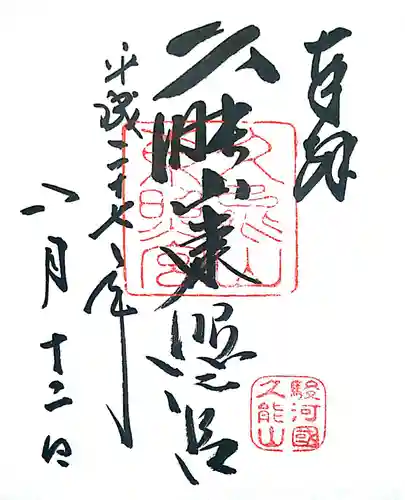 奉拝
久能山東照宮
平成二十七年
八月十二日
久能山東照宮
駿河國
久能山